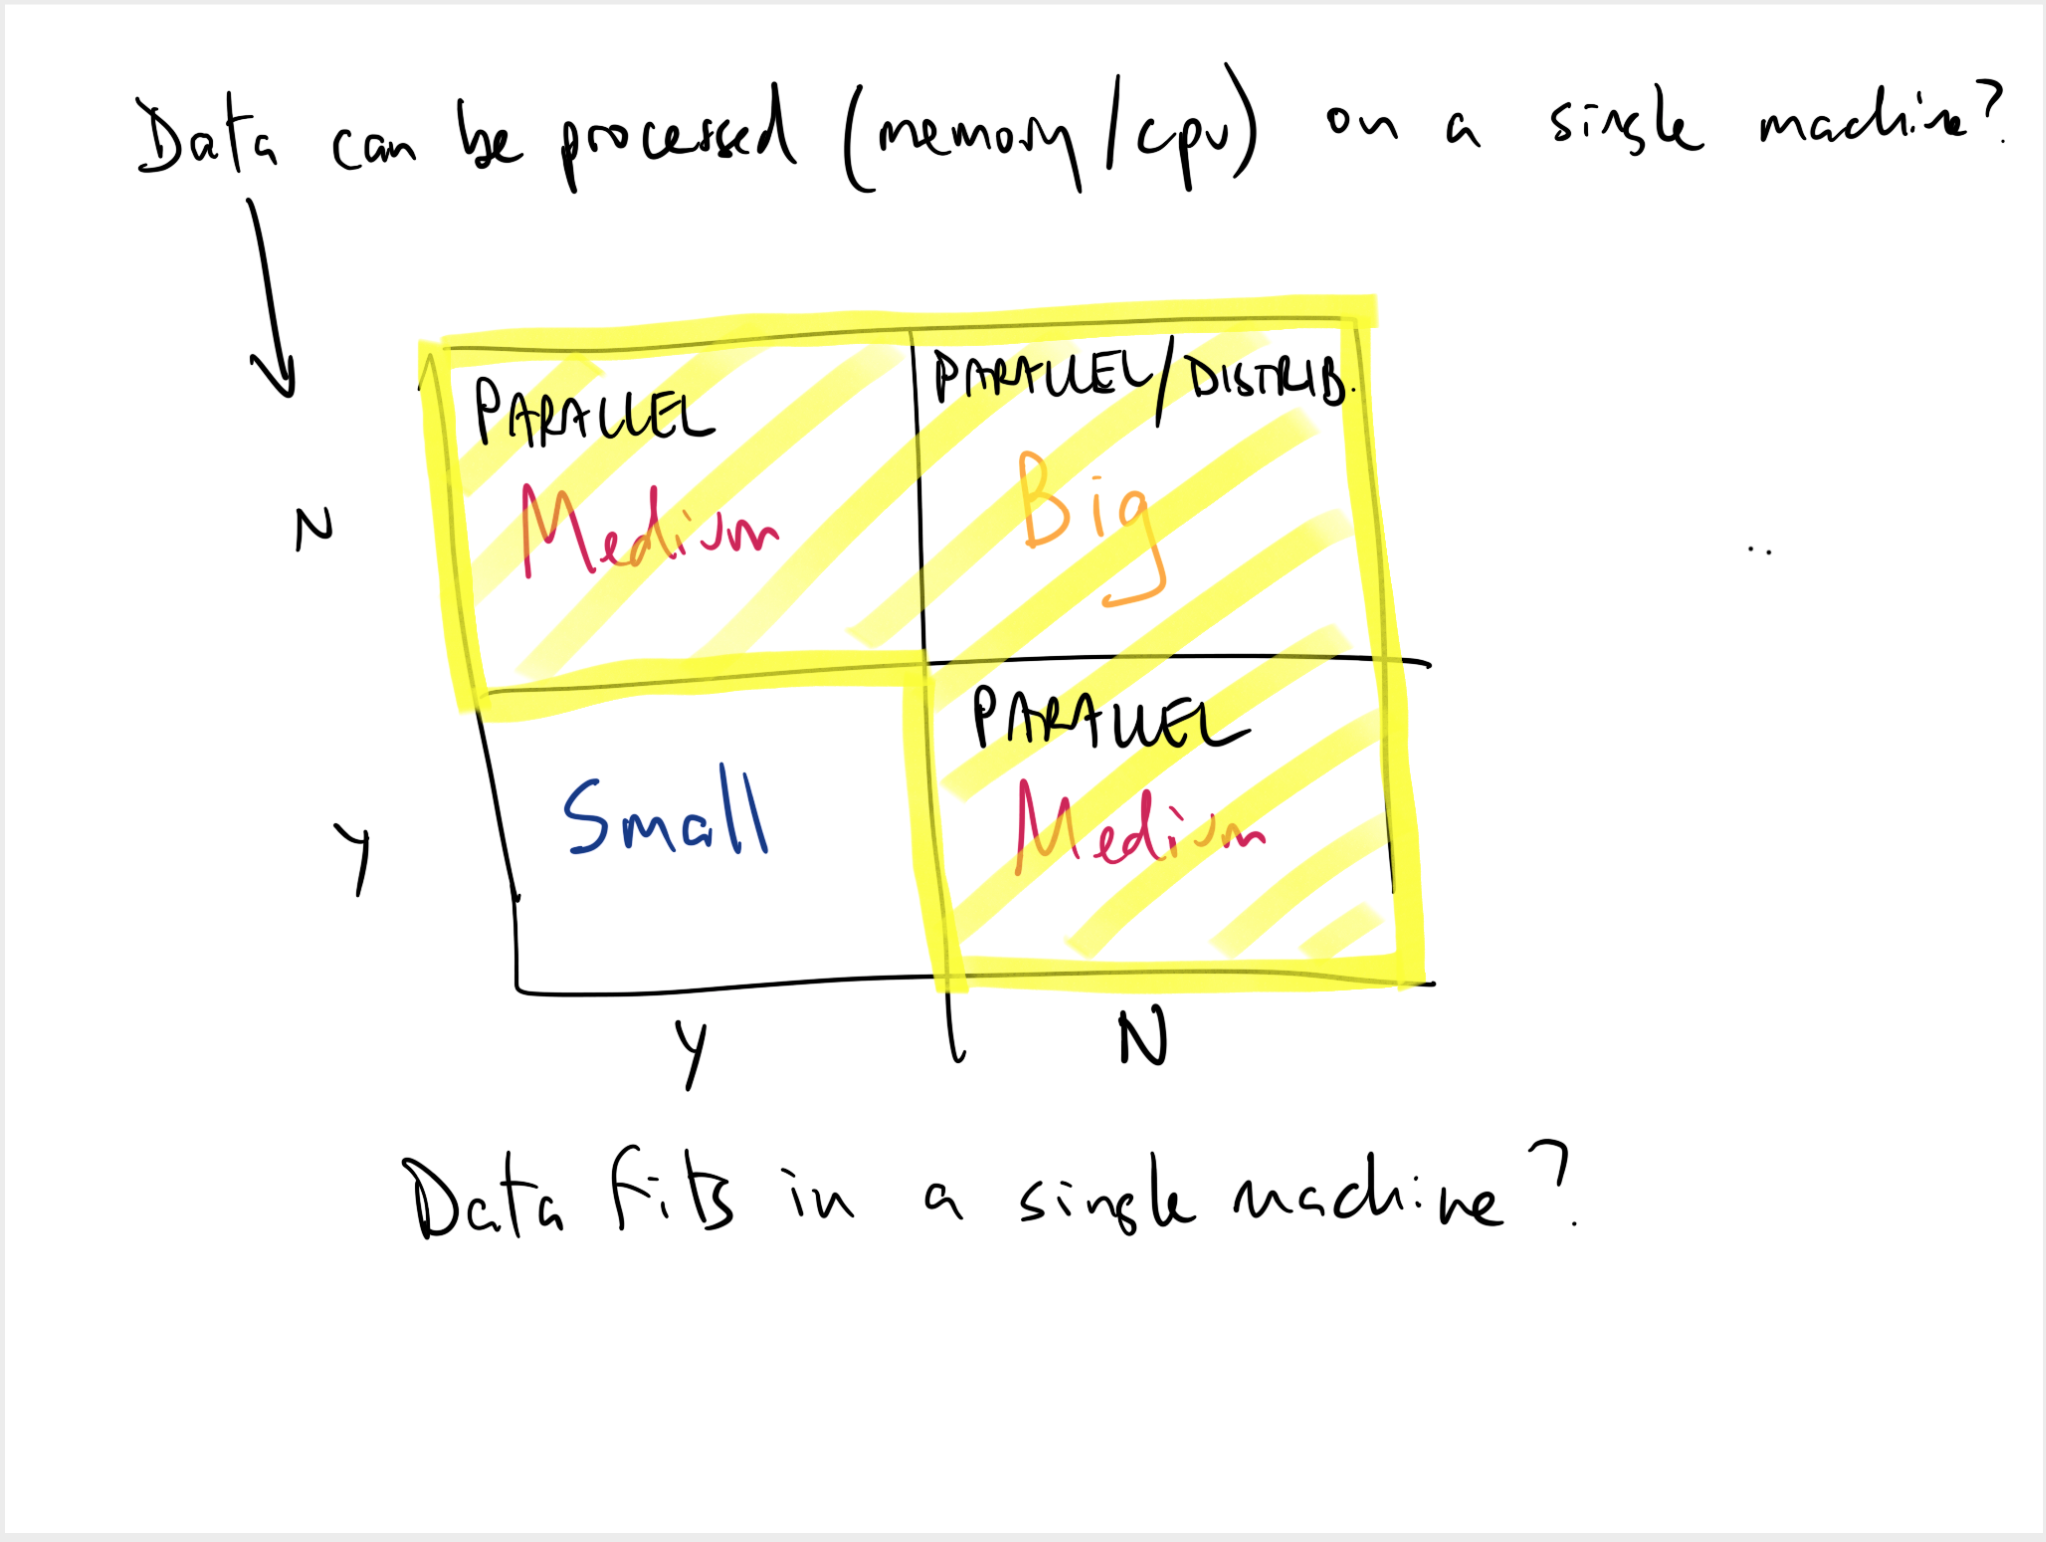 Data can be processed (memory/cpu) on a single machine?
PARALLEL
PARALLEL/DISTRIB.
N
Medium
Big
PARALLEL
Y
Small
Medium
Y
N
Data fits in a single machine?